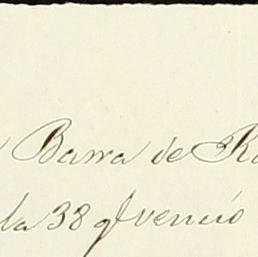 Barra de R
la 38 qe venció